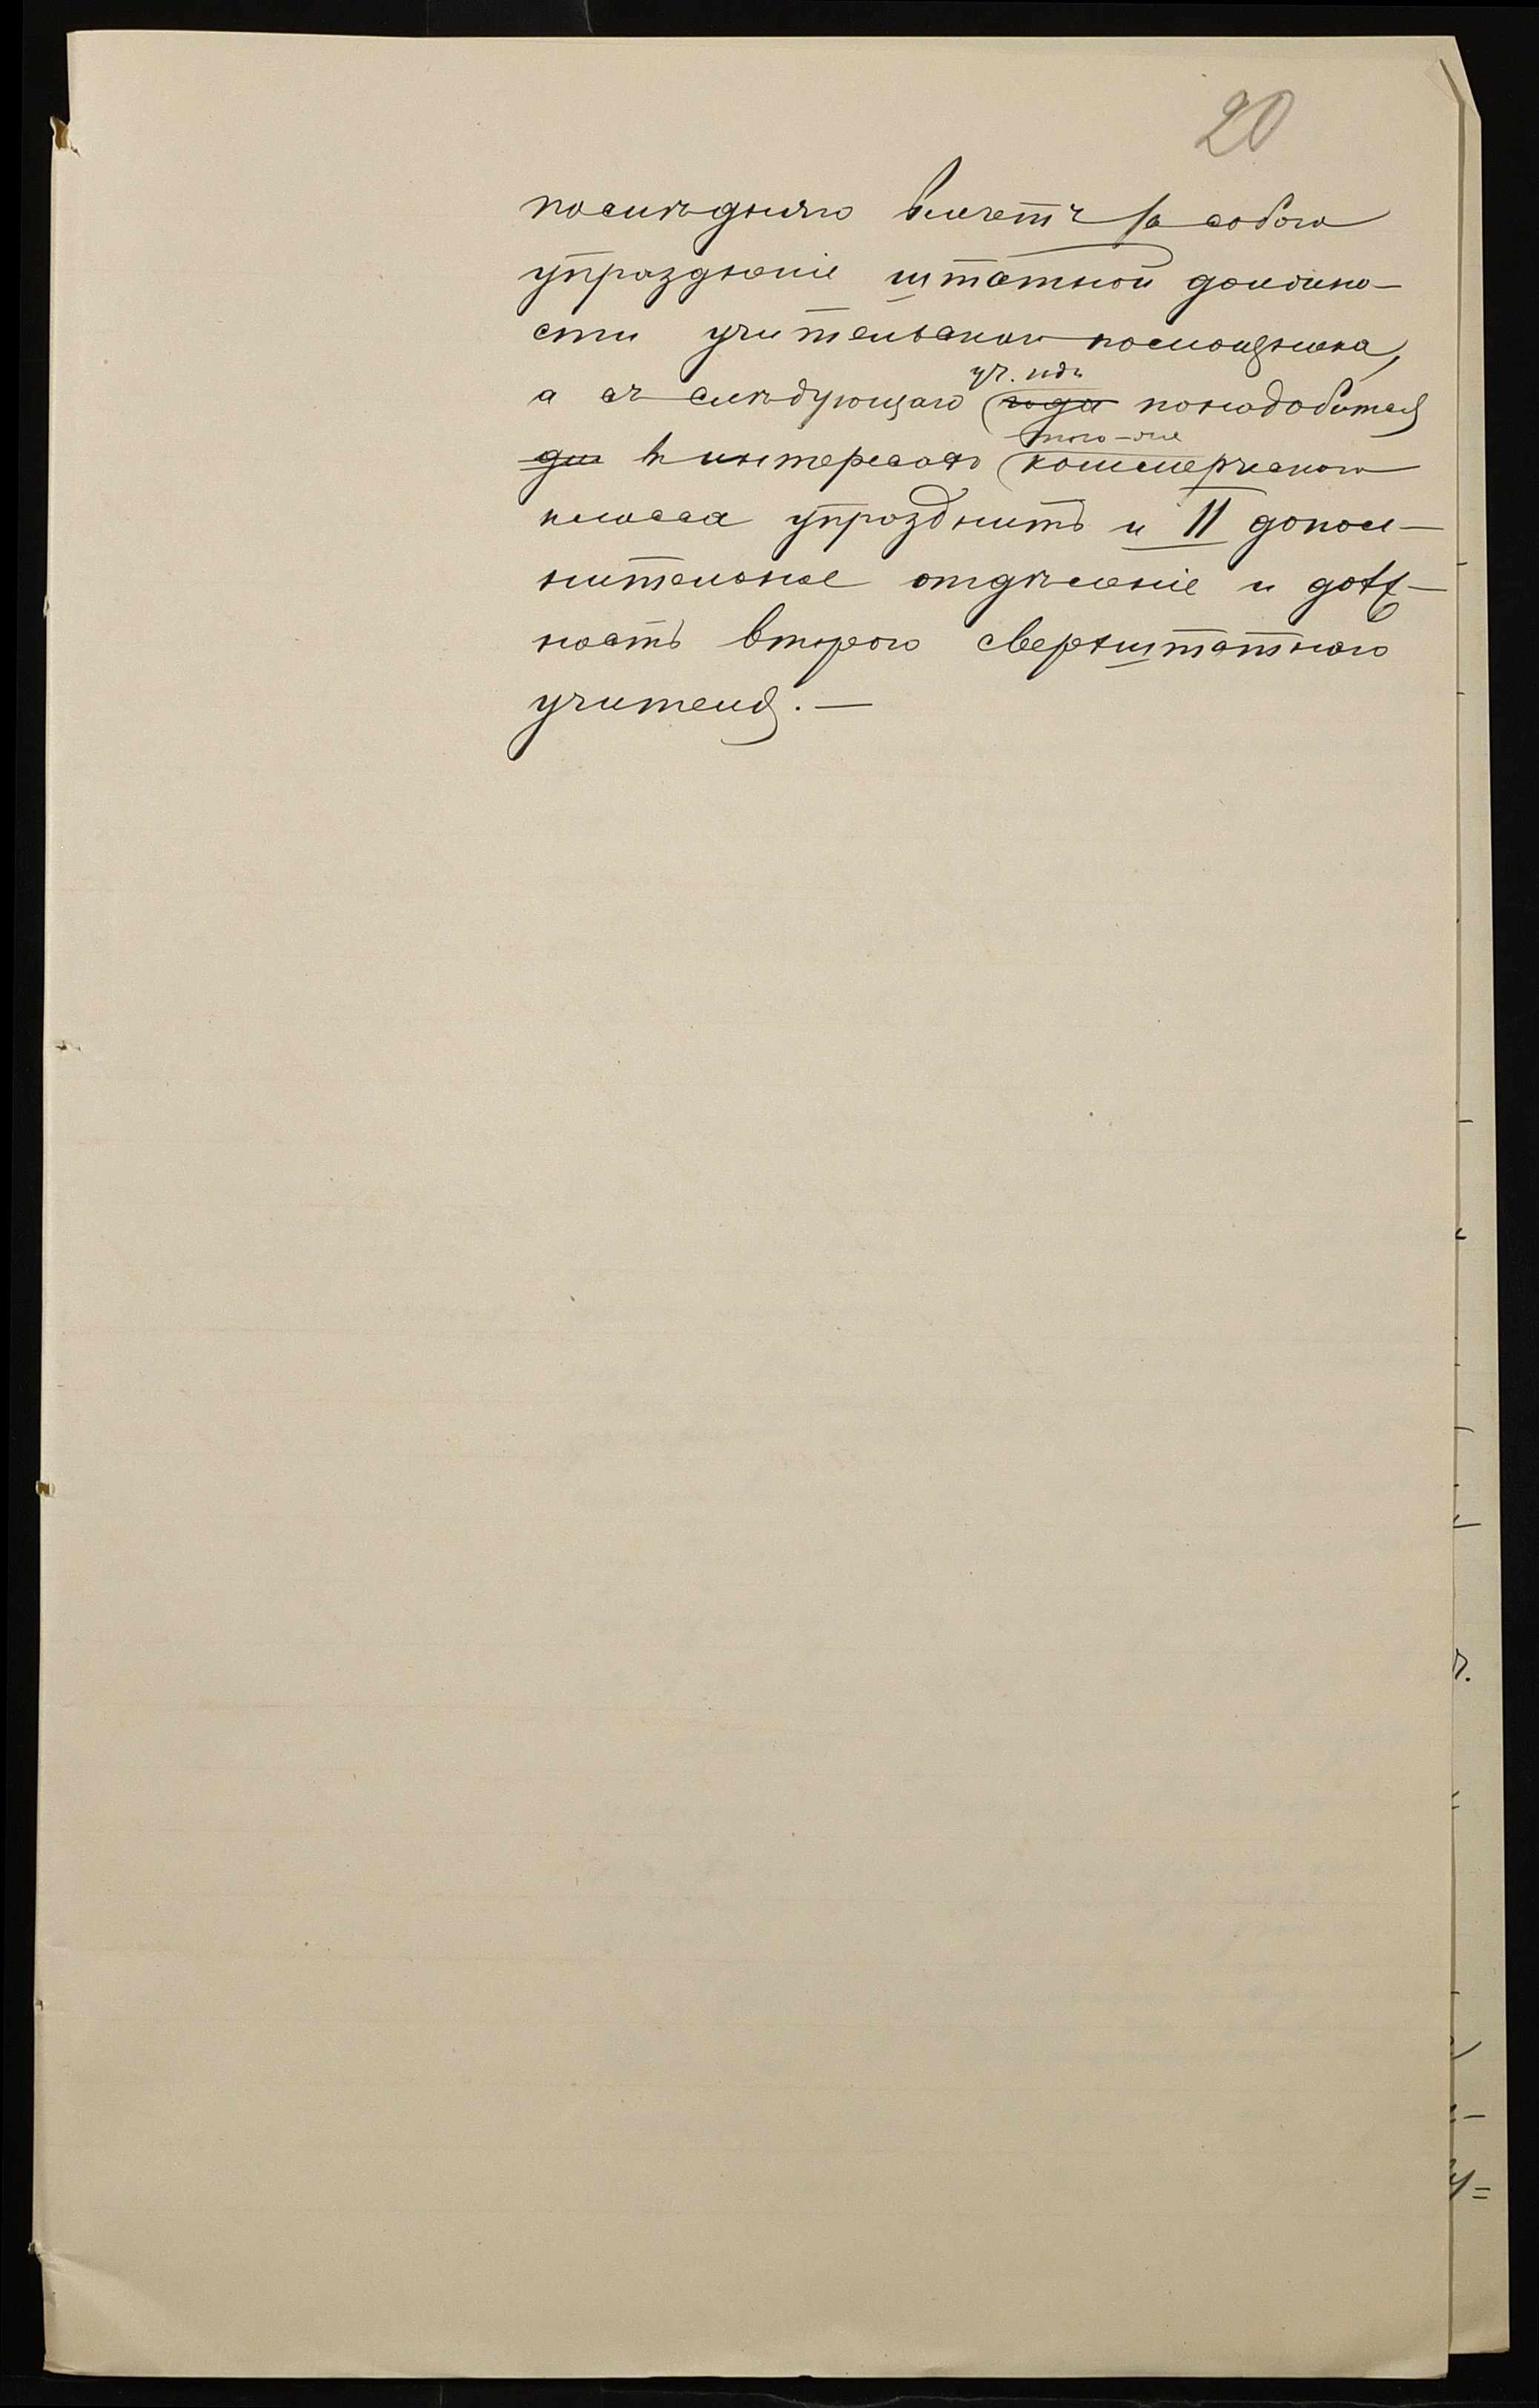 20
послѣдняго влечетъ за собою
упраздненіе штатной должно-
сти учительскаго помощника,
а съ слѣдующаго уч. года понадобится
для въ интересахъ того-же коммерческаго
класса упразднить и II допол-
нительное отдѣленіе и долж-
ность второго сверхштатнаго
учителя. —